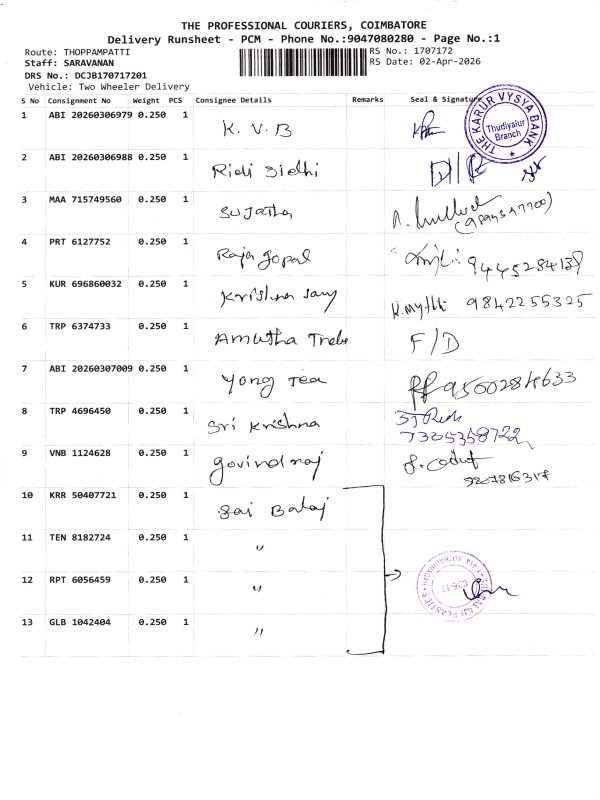 THE PROFESSIONAL COURIERS, COIMBATORE
Delivery Runsheet - PCM - Phone No.:9047080280 - Page No.:1
Route: THOPPAMPATTI
RS No.: 1707172
Staff: SARAVANAN
RS Date: 02-Apr-2026
DRS No.: DCJB170717201
Vehicle: Two Wheeler Delivery
S No Consignment No Weight PCS Consignee Details Remarks Seal & Signature
THE KARUR VYSYA BANK
Thudiyalur
Branch
1 ABI 20260306979 0.250 1 K. V. B
2 ABI 20260306988 0.250 1 Ridi Sidhi
3 MAA 715749560 0.250 1 Sujatha
4 PRT 6127752 0.250 1 Raja gopal 9445284139
5 KUR 696860032 0.250 1 Krishna samy K.mythli 9842255325
6 TRP 6374733 0.250 1 Amutha F/D
7 ABI 20260307009 0.250 1 Yong Tea 9500284633
8 TRP 4696450 0.250 1 Sri Krishna
7305358722
9 VNB 1124628 0.250 1 govind raj
10 KRR 50407721 0.250 1 Sai Balaj
11 TEN 8182724 0.250 1 "
12 RPT 6056459 0.250 1 "
13 GLB 1042404 0.250 1 "